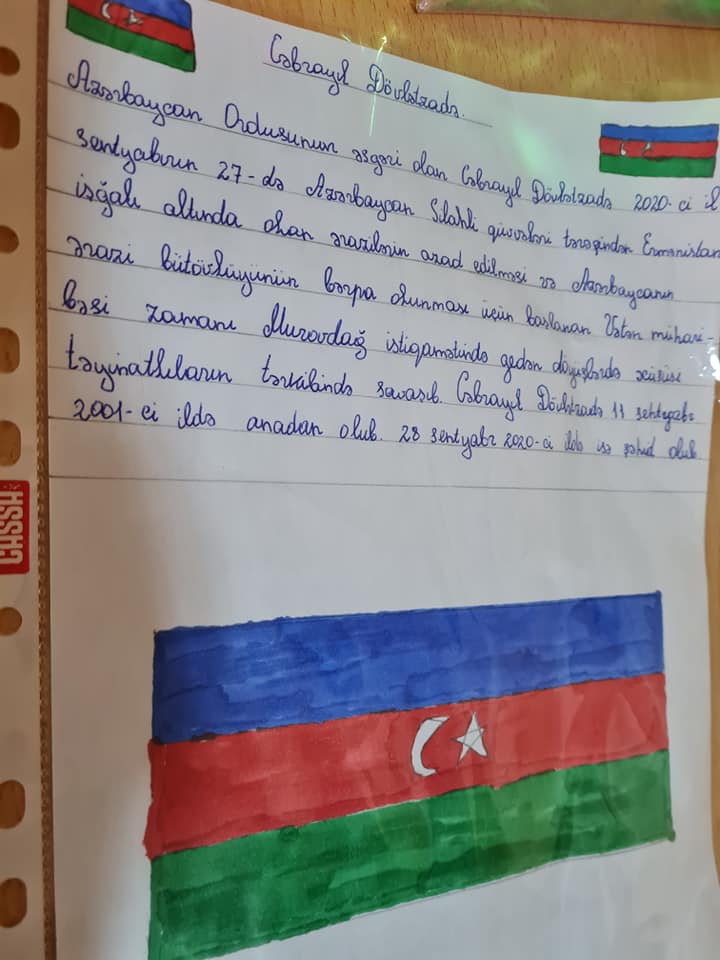 Cəbrayıl Dövlətzadə.
Azərbaycan Ordusunun əsgəri olan Cəbrayıl Dövlətzadə 2020-ci il
sentyabrın 27-də Azərbaycan Silahlı qüvvələri tərəfindən Ermənistan
işğalı altında olan ərazilərin azad edilməsi və Azərbaycanın
ərazi bütövlüyünün bərpa olunması üçün başlanan Vətən mühari-
bəsi zamanı Murovdağ istiqamətində gedən döyüşlərdə xüsusi
təyinatlıların tərkibində savaşıb. Cəbrayıl Dövlətzadə 11 sentyabr
2001-ci ildə anadan olub. 28 sentyabr 2020-ci ildə isə şəhid olub.
CASSA